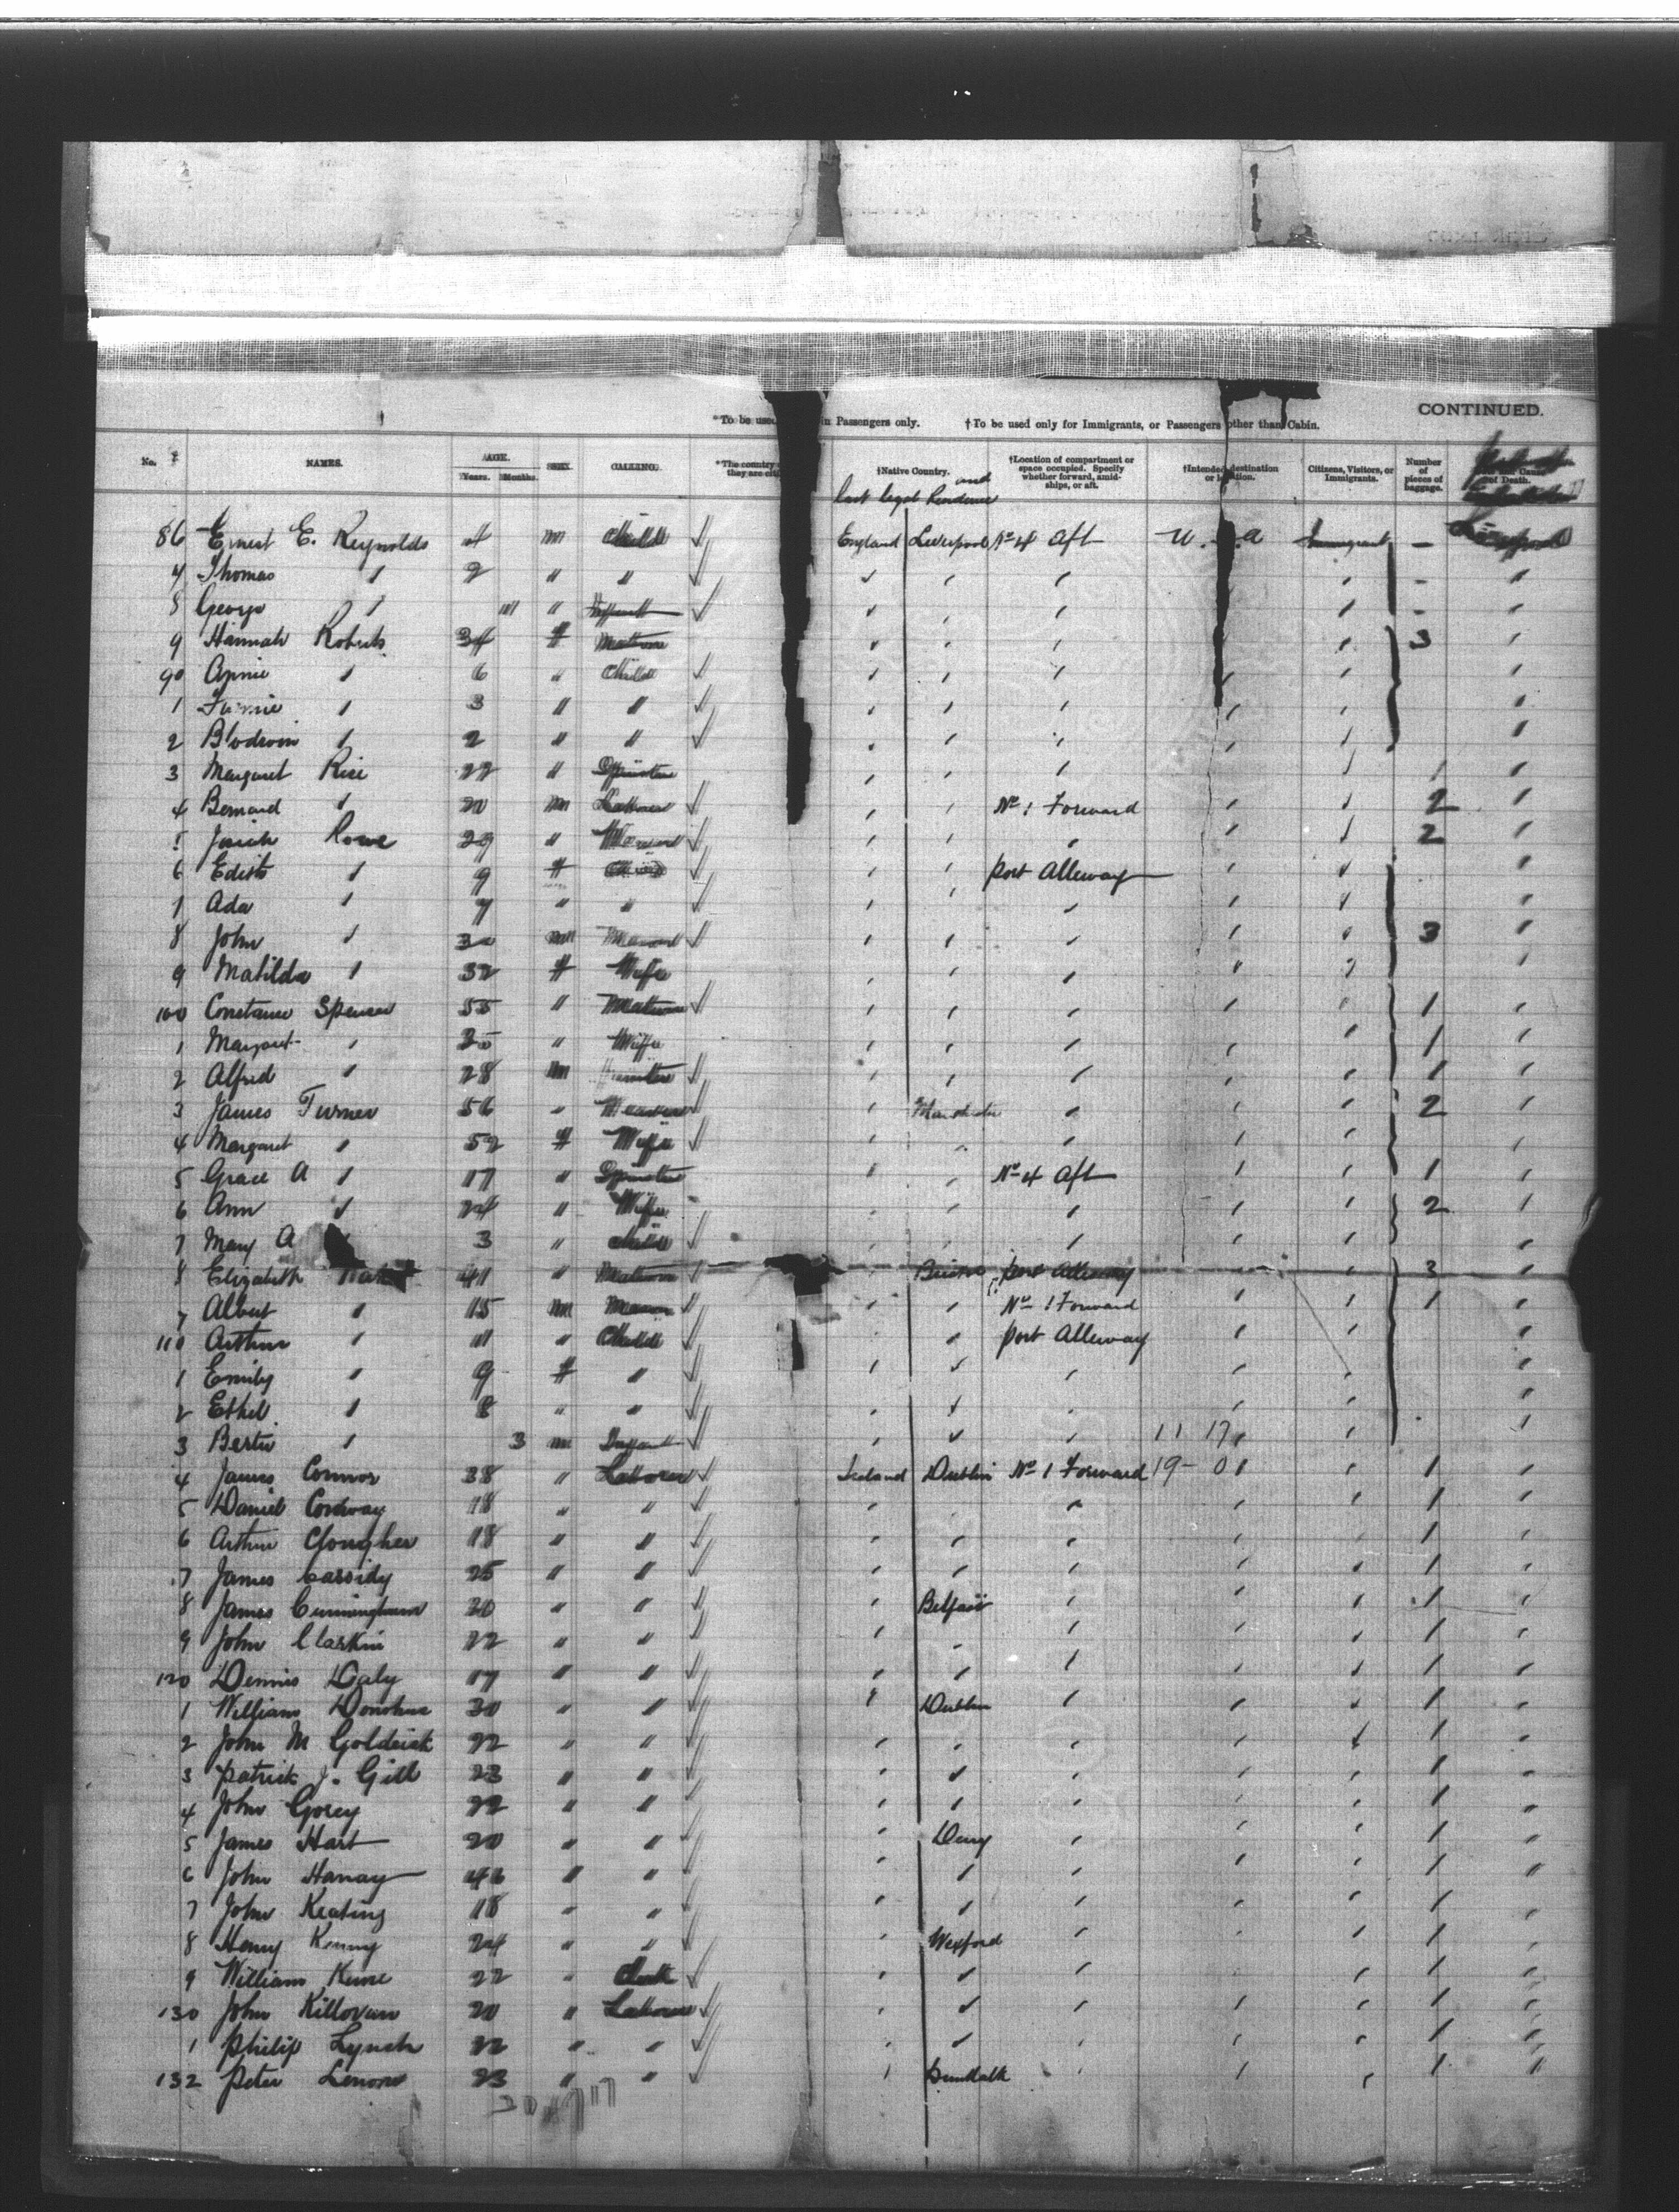 CONTINUED.
*To be used in Passengers only. †To be used only for Immigrants, or Passengers other than Cabin.
No. NAMES. AGE. Years. Months. SEX. CALLING. *The country they are †Native Country. and last legal Residence †Location of compartment or space occupied. Specify whether forward, amidships, or aft. †Intended destination or location. Citizens, Visitors, or Immigrants. Number of pieces of baggage. of Death.
86 Ernest E. Reynolds 4 m Child England Liverpool No 4 Aft U. a Immigrant - Liverpool
7 Thomas " 2 " " -
8 George " 11 " Infant -
9 Hannah Roberts 34 f Matron 3
90 Annie " 6 " Child
1 " 3 " "
2 Blodwin " 2 " "
3 Margaret Rice 22 " Spinster 1
4 Bernard " 20 m Laborer No 1 Forward 2
5 Rowe 29 " 2
6 Edith " 9 f Child port Alleway
7 Ada " 7 " "
8 John " 30 m 3
9 Matilda " 32 f Wife
100 Constance Spencer 55 " Matron 1
1 Margaret " 35 " Wife 1
2 Alfred " 28 m 1
3 James Turner 56 " Manchester 2
4 Margaret " 52 f Wife
5 Grace A " 17 " Spinster No 4 Aft 1
6 Ann " 24 " Wife 2
7 Mary A 3 " Child
8 Elizabeth 41 " Matron port Alleway 3
9 Albert " 15 m No 1 Forward 1
110 Arthur " 11 " Child port Alleway
1 Emily " 9 f "
2 Ethel " 8 " "
3 Bertie " 3 m Infant 11 17
4 James Connor 38 " Laborer Ireland Dublin No 1 Forward 19 - 01 1
5 Daniel Conway 18 " " 1
6 Arthur Clougher 18 " " 1
7 James Cassidy 25 " " 1
8 James Cunningham 20 " " Belfast 1
9 John Clarkin 22 " " 1
120 Dennis Daly 17 " " 1
1 William Donohue 30 " " Dublin 1
2 John M Goldrick 22 " " 1
3 Patrick J. Gill 23 " " 1
4 John Gorey 22 " " 1
5 James Hart 20 " " Derry 1
6 John Hanay 46 " " 1
7 John Keating 18 " " 1
8 Henry Kenny 24 " " Wexford 1
9 William Kune 22 " Clerk 1
130 John Killovan 20 " Laborer 1
1 Philip Lynch 22 " " 1
132 Peter Lenon 23 " " Dundalk 1